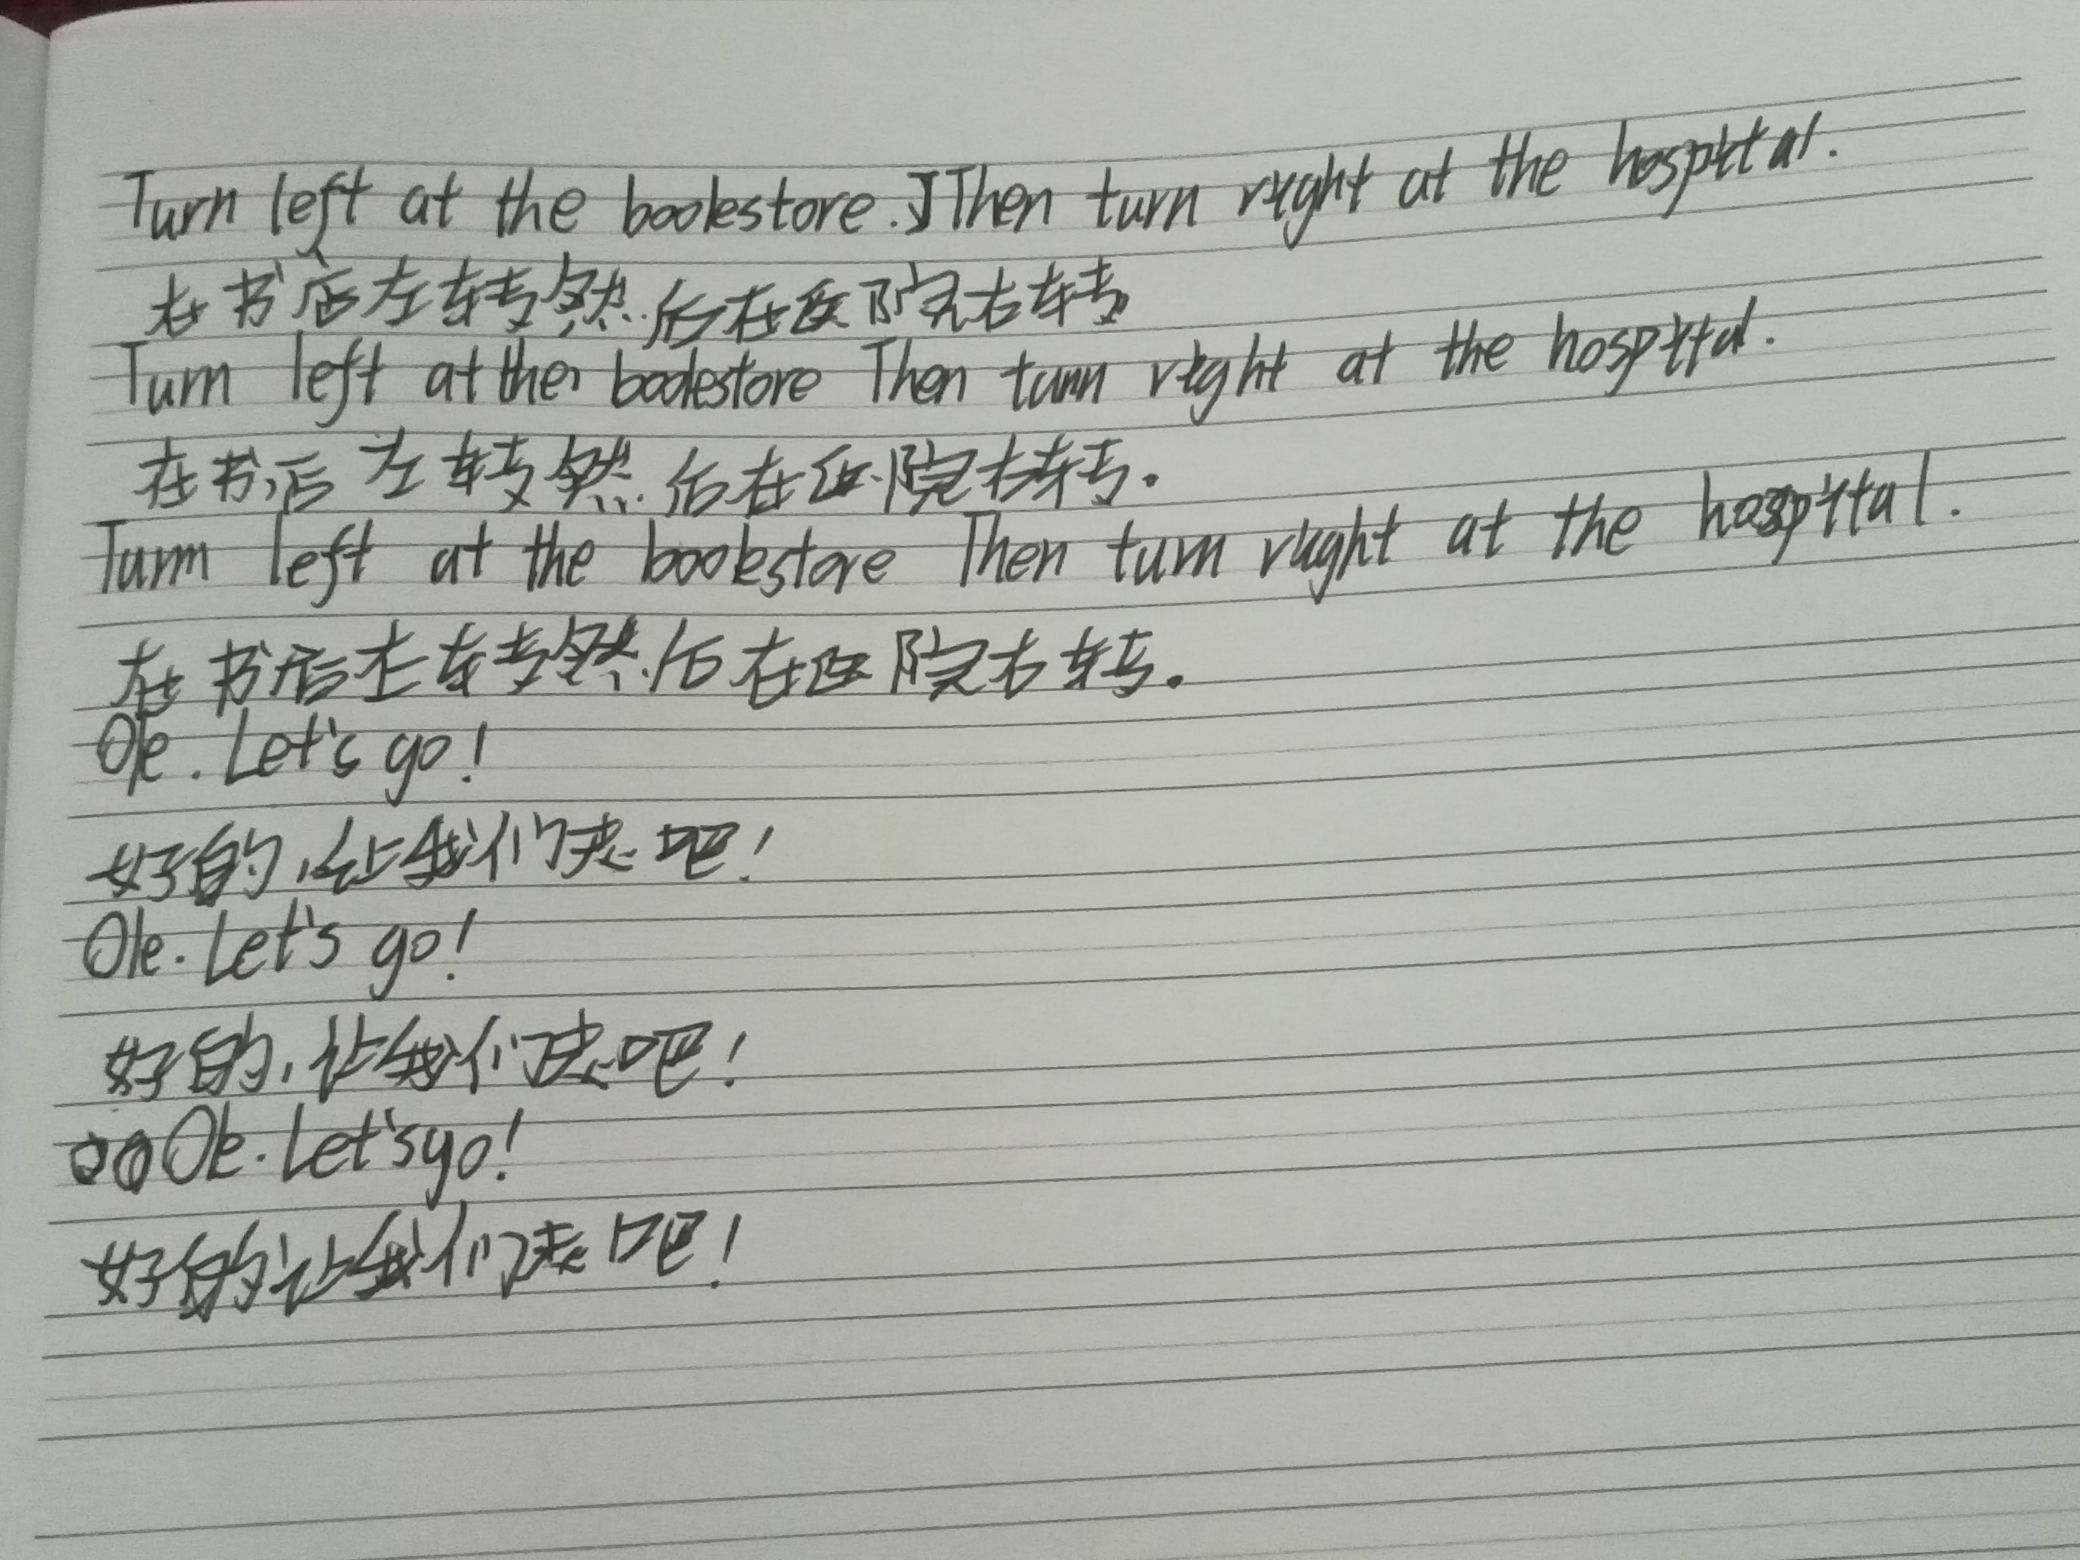 Turn left at the bookstore. Then turn right at the hospital.
在书店左转然后在医院右转
Turn left at the bookstore Then turn right at the hospital.
在书店左转然后在医院右转。
Turn left at the bookstore Then turn right at the hospital.
在书店左转然后在医院右转。
Ok. Let's go!
好的,让我们走吧!
Ok. Let's go!
好的,让我们走吧!
Ok. Let's go!
好的让我们走吧!